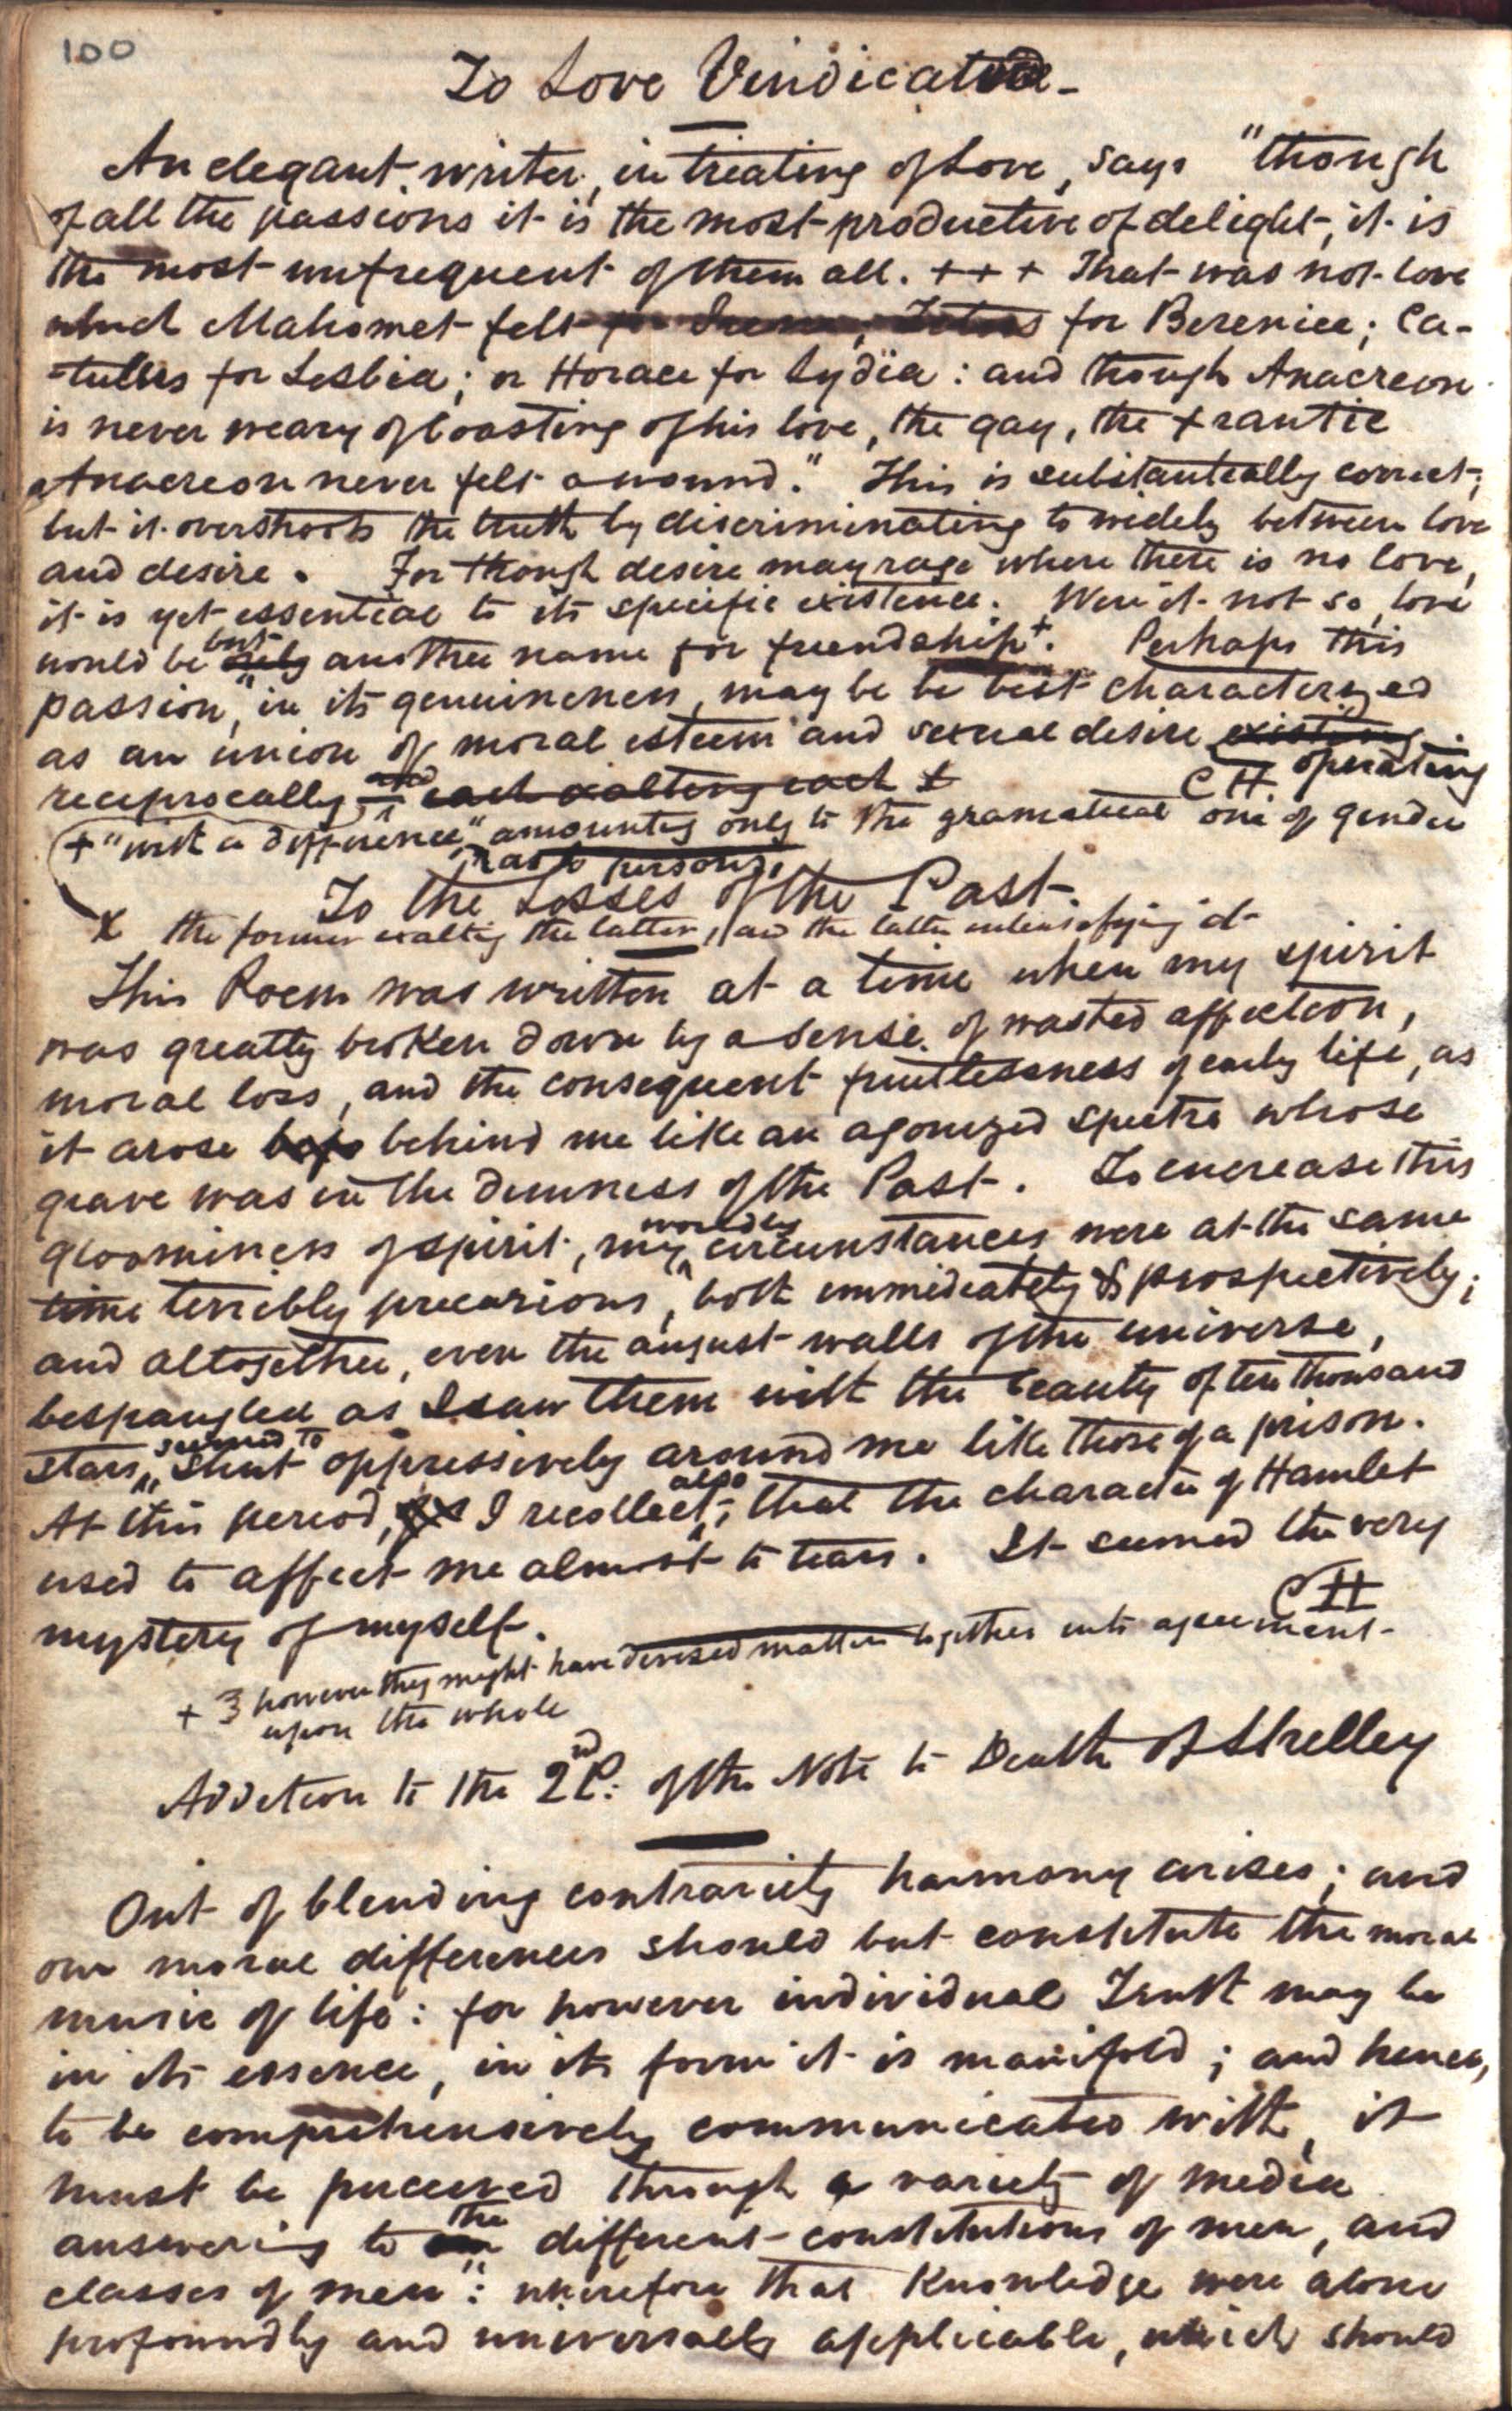 100
To Love Vindicated -
An elegant writer, in treating of Love, says "though
of all the passions it is the most productive of delight, it is
the most unfrequent of them all. + + + That was not love
which Mahomet felt for Irene; Titus for Berenice; Ca-
-tullus for Lesbia; or Horace for Lydia: and though Anacreon
is never weary of boasting of his love, the gay, the frantic
Anacreon never felt a wound." This is substantially correct;
but it overshoots the truth by discriminating to widely between love
and desire. For though desire may rage where there is no love,
it is yet essential to its specific existence. Were it not so, love
would be only but another name for friendship+. Perhaps this
passion, in its genuineness, may be be best characterized
as an union of moral esteem and sexual desire existing operating
reciprocally and each exalting each x
C H
+ "with a difference," amounting only to the gramatical one of gender
as to persons.
To the Losses of the Past.
x the former exalting the latter, and the latter intensifying it
This Poem was written at a time when my spirit
was greatly broken down by a sense of wasted affection,
moral loss, and the consequent fruitlessness of early life, as
it arose behind me like an agonized spectre whose
grave was in the dimness of the Past. To encrease this
gloominess of spirit, my worldly circumstances were at the same
time terribly precarious, both immediately & prospectively;
and altogether, even the august walls of the universe,
bespangled as I saw them with the beauty of ten thousand
stars, seemed to shut oppressively around me like those of a prison.
At this period, I recollect also, that the character of Hamlet
used to affect me almost to tears. It seemed the very
mystery of myself.
C H
+ 3 however they might have devised matters together into agreement
upon the whole
Addition to the 2nd P: of the Note to Death of Shelley
Out of blending contrariety harmony arises; and
our moral differences should but constitute the moral
music of life: for however individual Truth may be
in its essence, in its form it is manifold; and hence,
to be comprehensively communicated with, it
must be perceived through a variety of media
answering to the different constitutions of men, and
classes of men: wherefore that Knowledge were alone
profoundly and universally applicable, which should